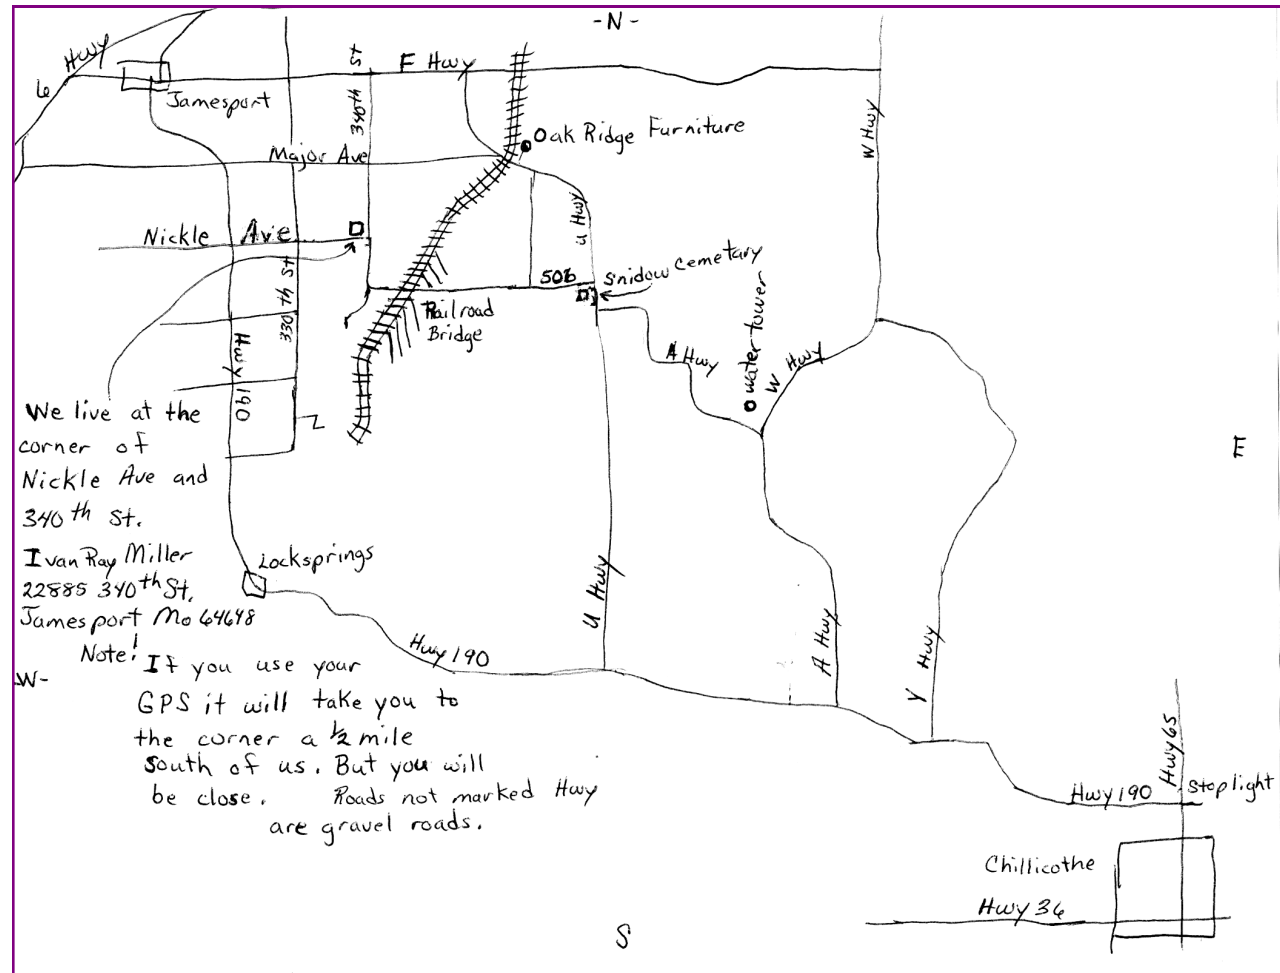 -N-
6 Hwy
F Hwy
340th St
Jamesport
Oak Ridge Furniture
W Hwy
Major Ave
Nickle Ave
u Hwy
506
Snidow Cemetary
330th St
Railroad
Bridge
water tower
A Hwy
W Hwy
Hwy 190
E
We live at the
corner of
Nickle Ave and
340th St.
Ivan Ray Miller
22885 340th St.
Jamesport Mo 64648
Locksprings
U Hwy
A Hwy
Y Hwy
Hwy 190
W-
Note! If you use your
GPS it will take you to
the corner a ½ mile
south of us. But you will
be close. Roads not marked Hwy
are gravel roads.
Hwy 65
Hwy 190
Stoplight
Chillicothe
Hwy 36
S